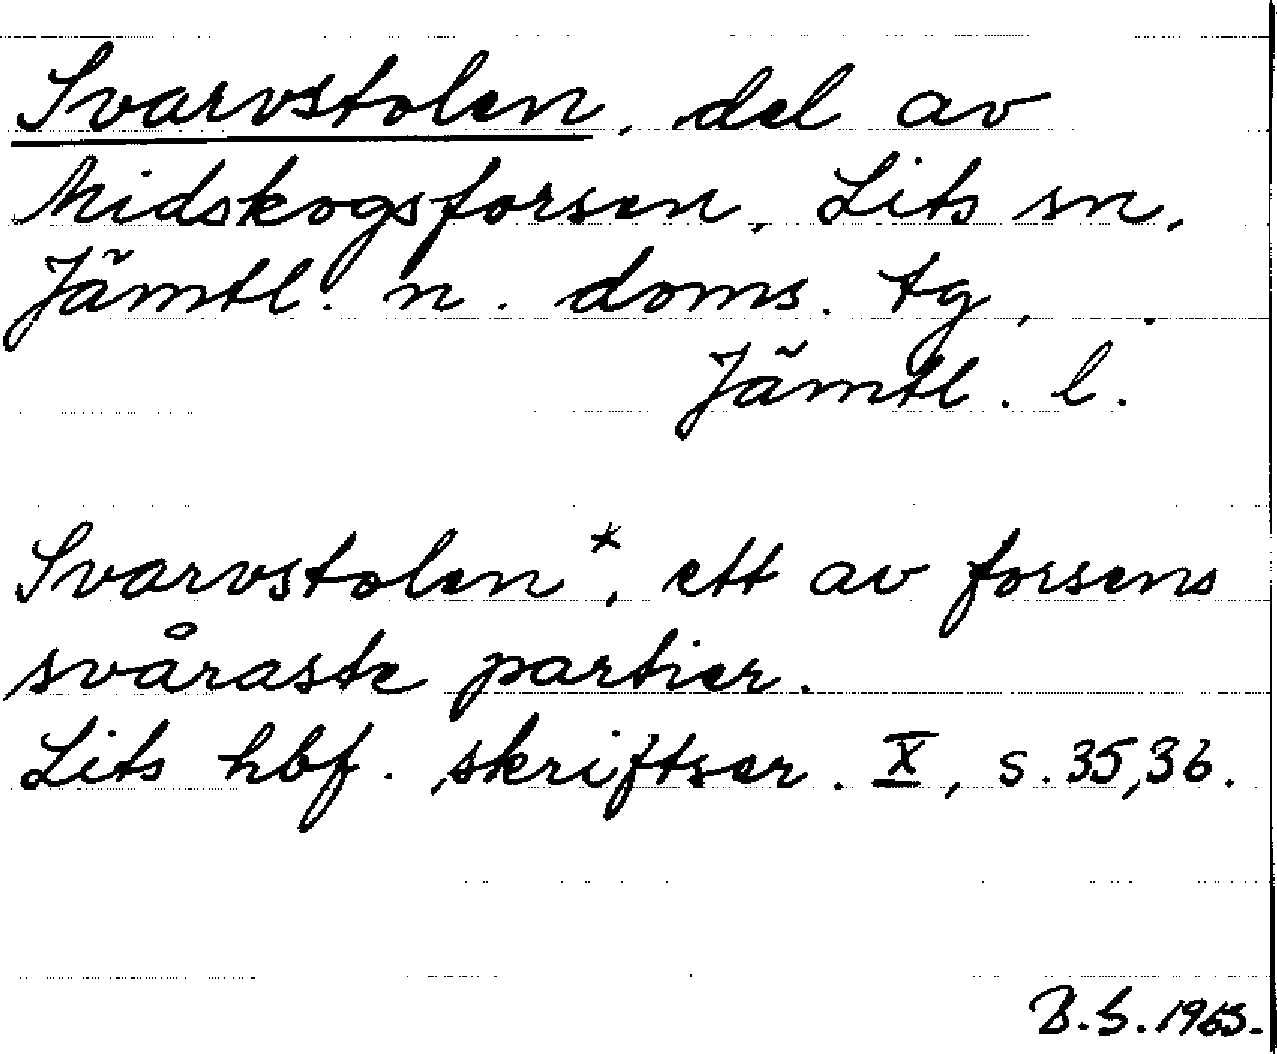 Svarvstolen, del av
Midskogsforsen, Lits sn,
Jämtl. n. doms. tg,
Jämtl. l.
Svarvstolen*, ett av forsens
svåraste partier.
Lits hbf. skriftser. X, s. 35,36.
B.S. 1963.